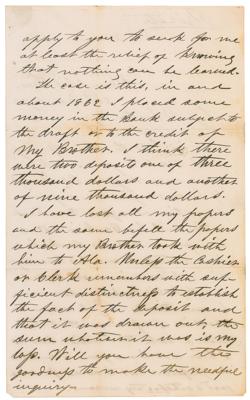 apply to you to seek for me
at least the relief of knowing
that nothing can be learned.
The case is this, in and
about 1862 I placed some
money in the Bank subject to
the draft or to the credit of
My Brother. I think there
were two deposits one of three
thousand dollars and another
of nine thousand dollars.
I have lost all my papers
and the same befell the papers
which my Brother took with
him to Ala. Unless the Cashier
or Clerk remembers with suf-
ficient distinctness to establish
the fact of the deposit and
that it was drawn out, the
sum whatever it was is my
loss. Will you have the
goodness to make the needful
inquiry